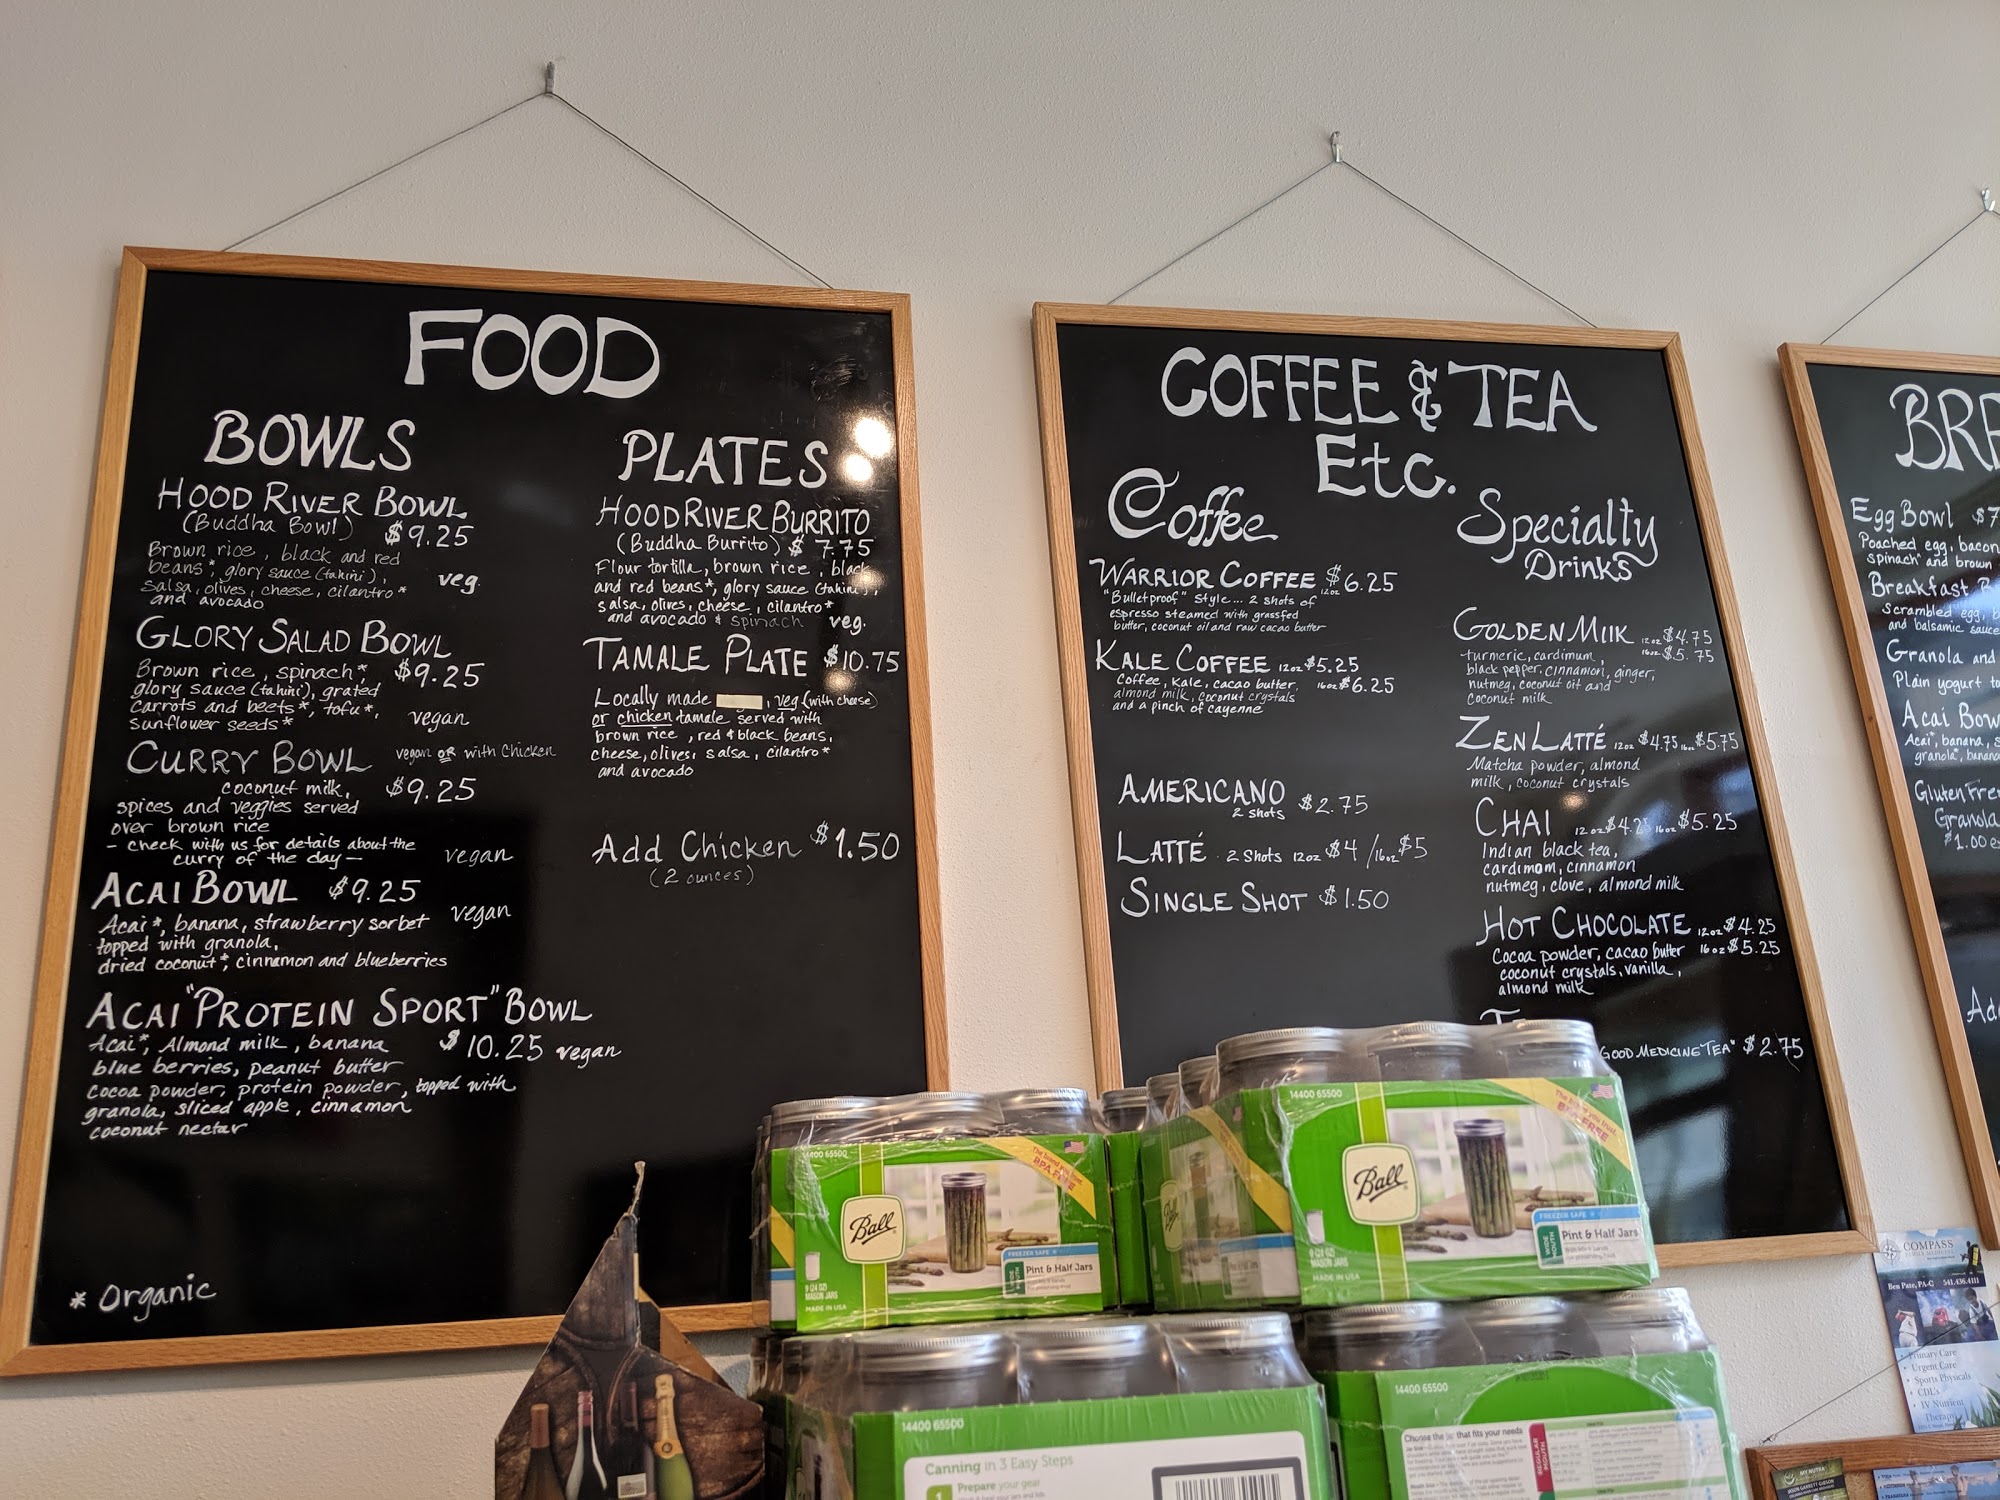 FOOD
BOWLS
HOOD RIVER BOWL
(Buddha Bowl) $9.25
Brown rice, black and red
beans*, glory sauce (tahini),
salsa, olives, cheese, cilantro*
and avocado
veg.
GLORY SALAD BOWL
Brown rice, spinach*, $9.25
glory sauce (tahini), grated
carrots and beets*, tofu*,
sunflower seeds*
vegan
CURRY BOWL vegan OR with Chicken
coconut milk, $9.25
spices and veggies served
over brown rice
- check with us for details about the
curry of the day -
vegan
ACAI BOWL $9.25
Acai*, banana, strawberry sorbet
topped with granola,
dried coconut*, cinnamon and blueberries
vegan
ACAI "PROTEIN SPORT" BOWL
Acai*, Almond milk, banana $10.25 vegan
blue berries, peanut butter
cocoa powder, protein powder, topped with
granola, sliced apple, cinnamon
coconut nectar
* Organic
PLATES
HOOD RIVER BURRITO
(Buddha Burrito) $7.75
Flour tortilla, brown rice, black
and red beans*, glory sauce (tahini),
salsa, olives, cheese, cilantro*
and avocado & spinach veg.
TAMALE PLATE $10.75
Locally made , veg (with cheese)
or chicken tamale served with
brown rice, red & black beans,
cheese, olives, salsa, cilantro*
and avocado
Add Chicken $1.50
(2 ounces)
COFFEE & TEA
Etc.
Coffee
WARRIOR COFFEE 12oz $6.25
"Bulletproof" Style... 2 shots of
espresso steamed with grassfed
butter, coconut oil and raw cacao butter
KALE COFFEE 12oz $5.25
Coffee, kale, cacao butter, 16oz $6.25
almond milk, coconut crystals
and a pinch of cayenne
AMERICANO $2.75
2 shots
LATTÉ 2 Shots 12oz $4 /16oz $5
SINGLE SHOT $1.50
Specialty
Drinks
GOLDEN MILK 12oz $4.75
16oz $5.75
turmeric, cardimum,
black pepper, cinnamon, ginger,
nutmeg, coconut oil and
coconut milk
ZEN LATTÉ 12oz $4.75 16oz $5.75
Matcha powder, almond
milk, coconut crystals
CHAI 12oz $4.25 16oz $5.25
Indian black tea,
cardimom, cinnamon
nutmeg, clove, almond milk
HOT CHOCOLATE 12oz $4.25
Cocoa powder, cacao butter 16oz $5.25
coconut crystals, vanilla,
almond milk
GOOD MEDICINE TEA" $2.75
BRE
Egg Bowl $7
Poached egg, bacon
spinach and brown
Breakfast B
Scrambled egg, b
and balsamic sauce
Granola and
Plain yogurt to
Acai Bow
Acai*, banana, s
granola*, banana
Gluten Free
Granola
$1.00 e
Ad
14400 65500
The brand you trust
BPA FREE
Ball
FREEZER SAFE
WIDE MOUTH
Pint & Half Jars
9 (24 OZ)
MASON JARS
MADE IN USA
14400 65500
The brand you trust
BPA FREE
Ball
FREEZER SAFE
WIDE MOUTH
Pint & Half Jars
9 (24 OZ)
MASON JARS
MADE IN USA
14400 65500
Canning in 3 Easy Steps
1 Prepare your gear
14400 65500
Choose the jar that fits your needs
REGULAR MOUTH
COMPASS
Ben Pate, PA-C 541.436.4111
• Primary Care
• Urgent Care
• Sports Physicals
• CDL's
• IV Nutrient
Therapy
MY NUTRA